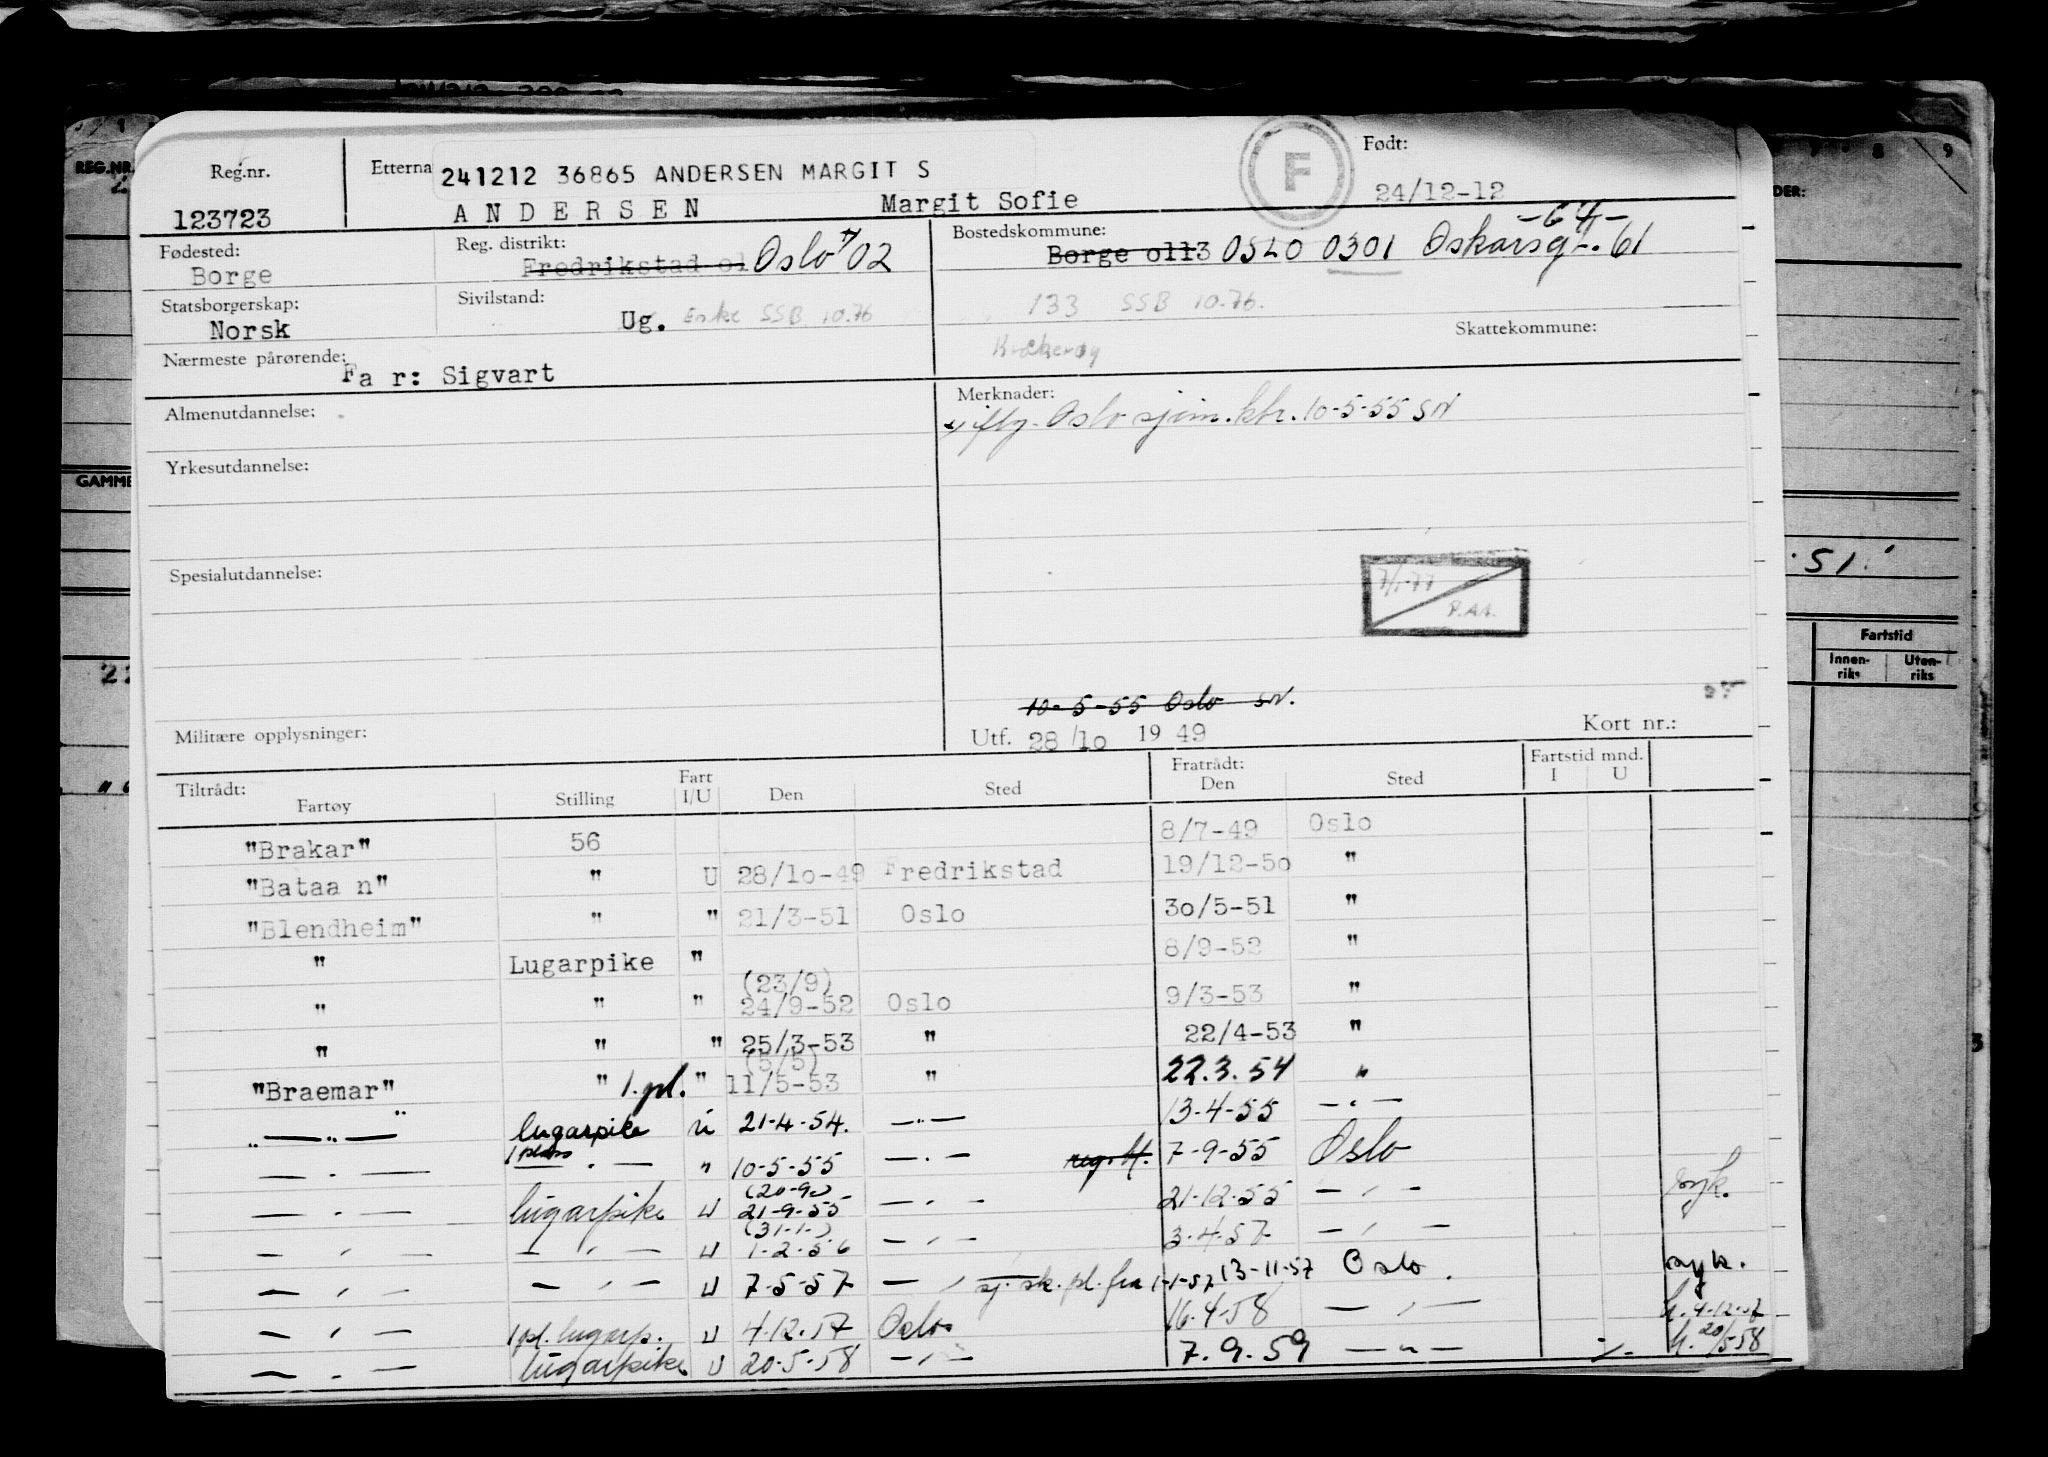 REG.NR.
GAMME
Reg.nr.
123723
Etterna
241212 36865 ANDERSEN MARGIT S
A N D E R S E N Margit Sofie
F
Født:
24/12-12
Fødested:
Borge
Reg. distrikt:
Fredrikstad o1 Oslo 02
Bostedskommune:
Borge o113 OSLO 0301 Oskarsgt. 61
-64-
Statsborgerskap:
Norsk
Sivilstand:
Ug. Enke SSB 10.76
133 SSB 10.76.
Kråkerøy
Skattekommune:
Nærmeste pårørende:
Fa r: Sigvart
Almenutdannelse:
Merknader:
x) iflg. Oslo sjøm.ktr. 10-5-55 SN
Yrkesutdannelse:
Spesialutdannelse:
7/1-77
P.AA.
10-5-55 Oslo SN.
Militære opplysninger:
Utf. 28/1o 19 49
Kort nr.:
Tiltrådt:
Fartøy Stilling Fart I/U Den Sted
Fratrådt:
Den Sted
Fartstid mnd.
I U
"Brakar" 56 8/7-49 Oslo
"Bataa n" " U 28/1o-49 Fredrikstad 19/12-5o "
"Blendheim" " " 21/3-51 Oslo 3o/5-51 "
" Lugarpike " 8/9-52 "
(23/9)
" " " 24/9-52 Oslo 9/3-53 "
" " " 25/3-53 " 22/4-53 "
(5/5)
"Braemar" " 1.pl. " 11/5-53 " 22.3.54 "
" — " — lugarpike u 21-4-54. — " — 13-4-55 — " —
1 plass
— " — — " — " 10-5-55 — " — reg. 7-9-55 Oslo
(20-9)
— " — lugarpike U 21-9-55 — " — 21-12-55 — " — syk.
(31-1-)
— " — — " — U 1-2-56 — " — 3-4-57 — " —
— " — — " — U 7-5-57 — " — sj. sk. pl. fra 1-1-57 13-11-57 Oslo. syk.
— " — 1 pl. lugarp. U 4-12-57 Oslo 16-4-58 — " — h. 4-12-57
— " — lugarpike U 20-5-58 — " — 7.9.59 — " — h. 20/5 58
DER:
51.
Fartstid
Innen-
riks
Uten-
riks